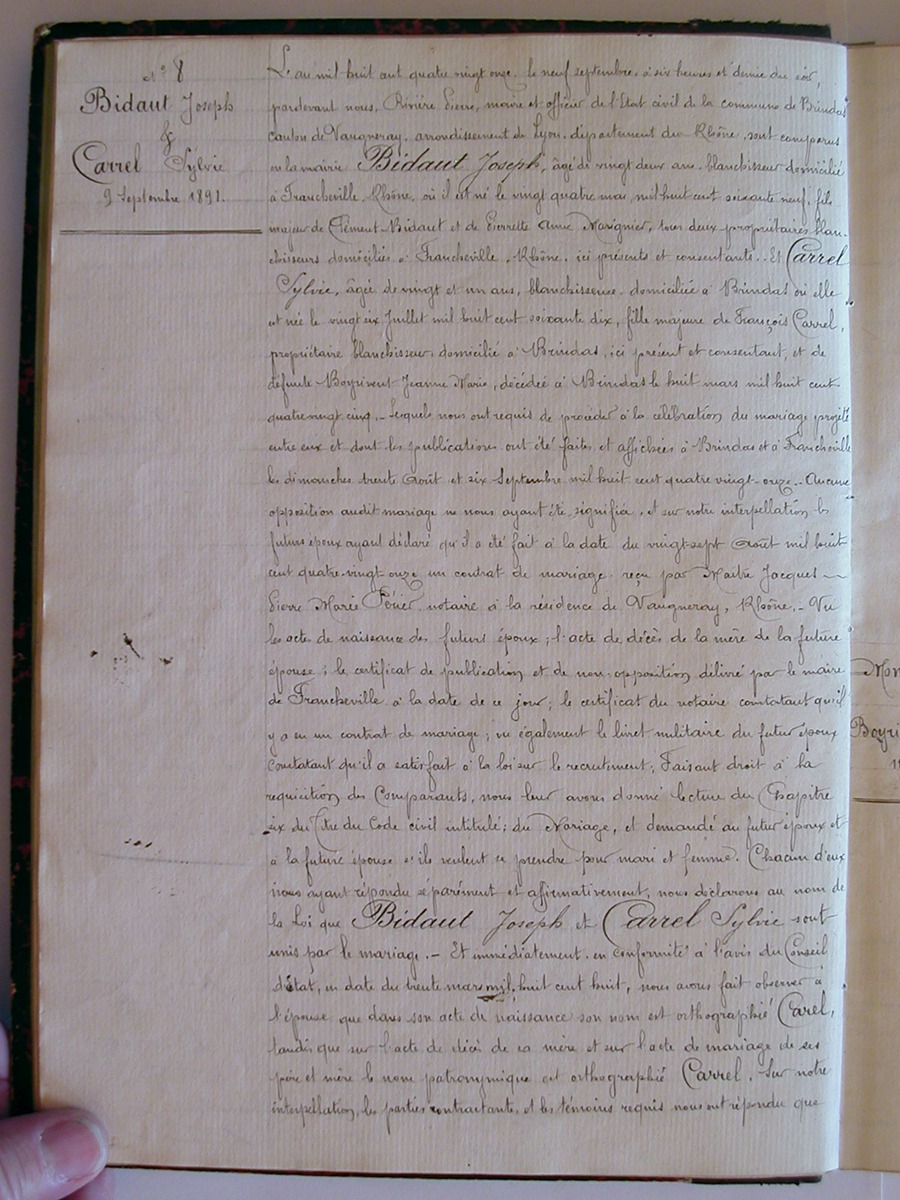 N° 8
Bidaut Joseph
&
Carrel Sylvie
9 Septembre 1891.
L'an mil huit cent quatre vingt onze, le neuf septembre, à six heures et demie du soir,
pardevant nous, Rivière Pierre, maire et officier de l'Etat civil de la commune de Brindas
canton de Vaugneray, arrondissement de Lyon, département du Rhône, sont comparus
en la mairie Bidaut Joseph, âgé de vingt deux ans, blanchisseur domicilié
à Francheville, Rhône, où il est né le vingt quatre mai mil huit cent soixante neuf, fils
majeur de Clément Bidaut et de Pierrette Annie Marignier, tous deux propriétaires blan-
chisseurs domiciliés à Francheville, Rhône, ici présents et consentants.. Et Carrel
Sylvie, âgée de vingt et un ans, blanchisseuse, domiciliée à Brindas où elle
est née le vingt six Juillet mil huit cent soixante dix, fille majeure de François Carrel,
propriétaire blanchisseur, domicilié à Brindas, ici présent et consentant, et de
défunte Boyrivent Jeanne Marie, décédée à Brindas le huit mars mil huit cent
quatre vingt cinq. – Lesquels nous ont requis de procéder à la célébration du mariage projeté
entre eux et dont les publications ont été faites et affichées à Brindas et à Francheville
les dimanches trente Août et six Septembre mil huit cent quatre vingt-onze.. Aucune
opposition audit mariage ne nous ayant été signifiée, et sur notre interpellation les
futurs époux ayant déclaré qu'il a été fait à la date du vingt-sept Août mil huit
cent quatre-vingt-onze un contrat de mariage reçu par Maître Jacques
Pierre Marie Périer, notaire à la résidence de Vaugneray, Rhône, – Vu
les actes de naissance des futurs époux; l'acte de décès de la mère de la future
épouse; le certificat de publication et de non-opposition délivré par le maire
de Francheville à la date de ce jour; le certificat du notaire constatant qu'il
y a eu un contrat de mariage; vu également le livret militaire du futur époux
constatant qu'il a satisfait à la loi sur le recrutement; Faisant droit à la
requisition des Comparants, nous leur avons donné lecture du Chapitre
six du Titre du Code civil intitulé: du Mariage, et demandé au futur époux et
à la future épouse s'ils veulent se prendre pour mari et femme. Chacun d'eux
nous ayant répondu séparément et affirmativement, nous déclarons au nom de
la Loi que Bidaut Joseph et Carrel Sylvie sont
unis par le mariage. – Et immédiatement, en conformité à l'avis du Conseil
d'Etat, en date du trente mars mil huit cent huit, nous avons fait observer à
l'épouse que dans son acte de naissance son nom est orthographié Carel,
tandis que sur l'acte de décès de sa mère et sur l'acte de mariage de ses
père et mère le nom patronymique est orthographié Carrel. Sur notre
interpellation, les parties contractantes, et les témoins requis nous ont répondu que